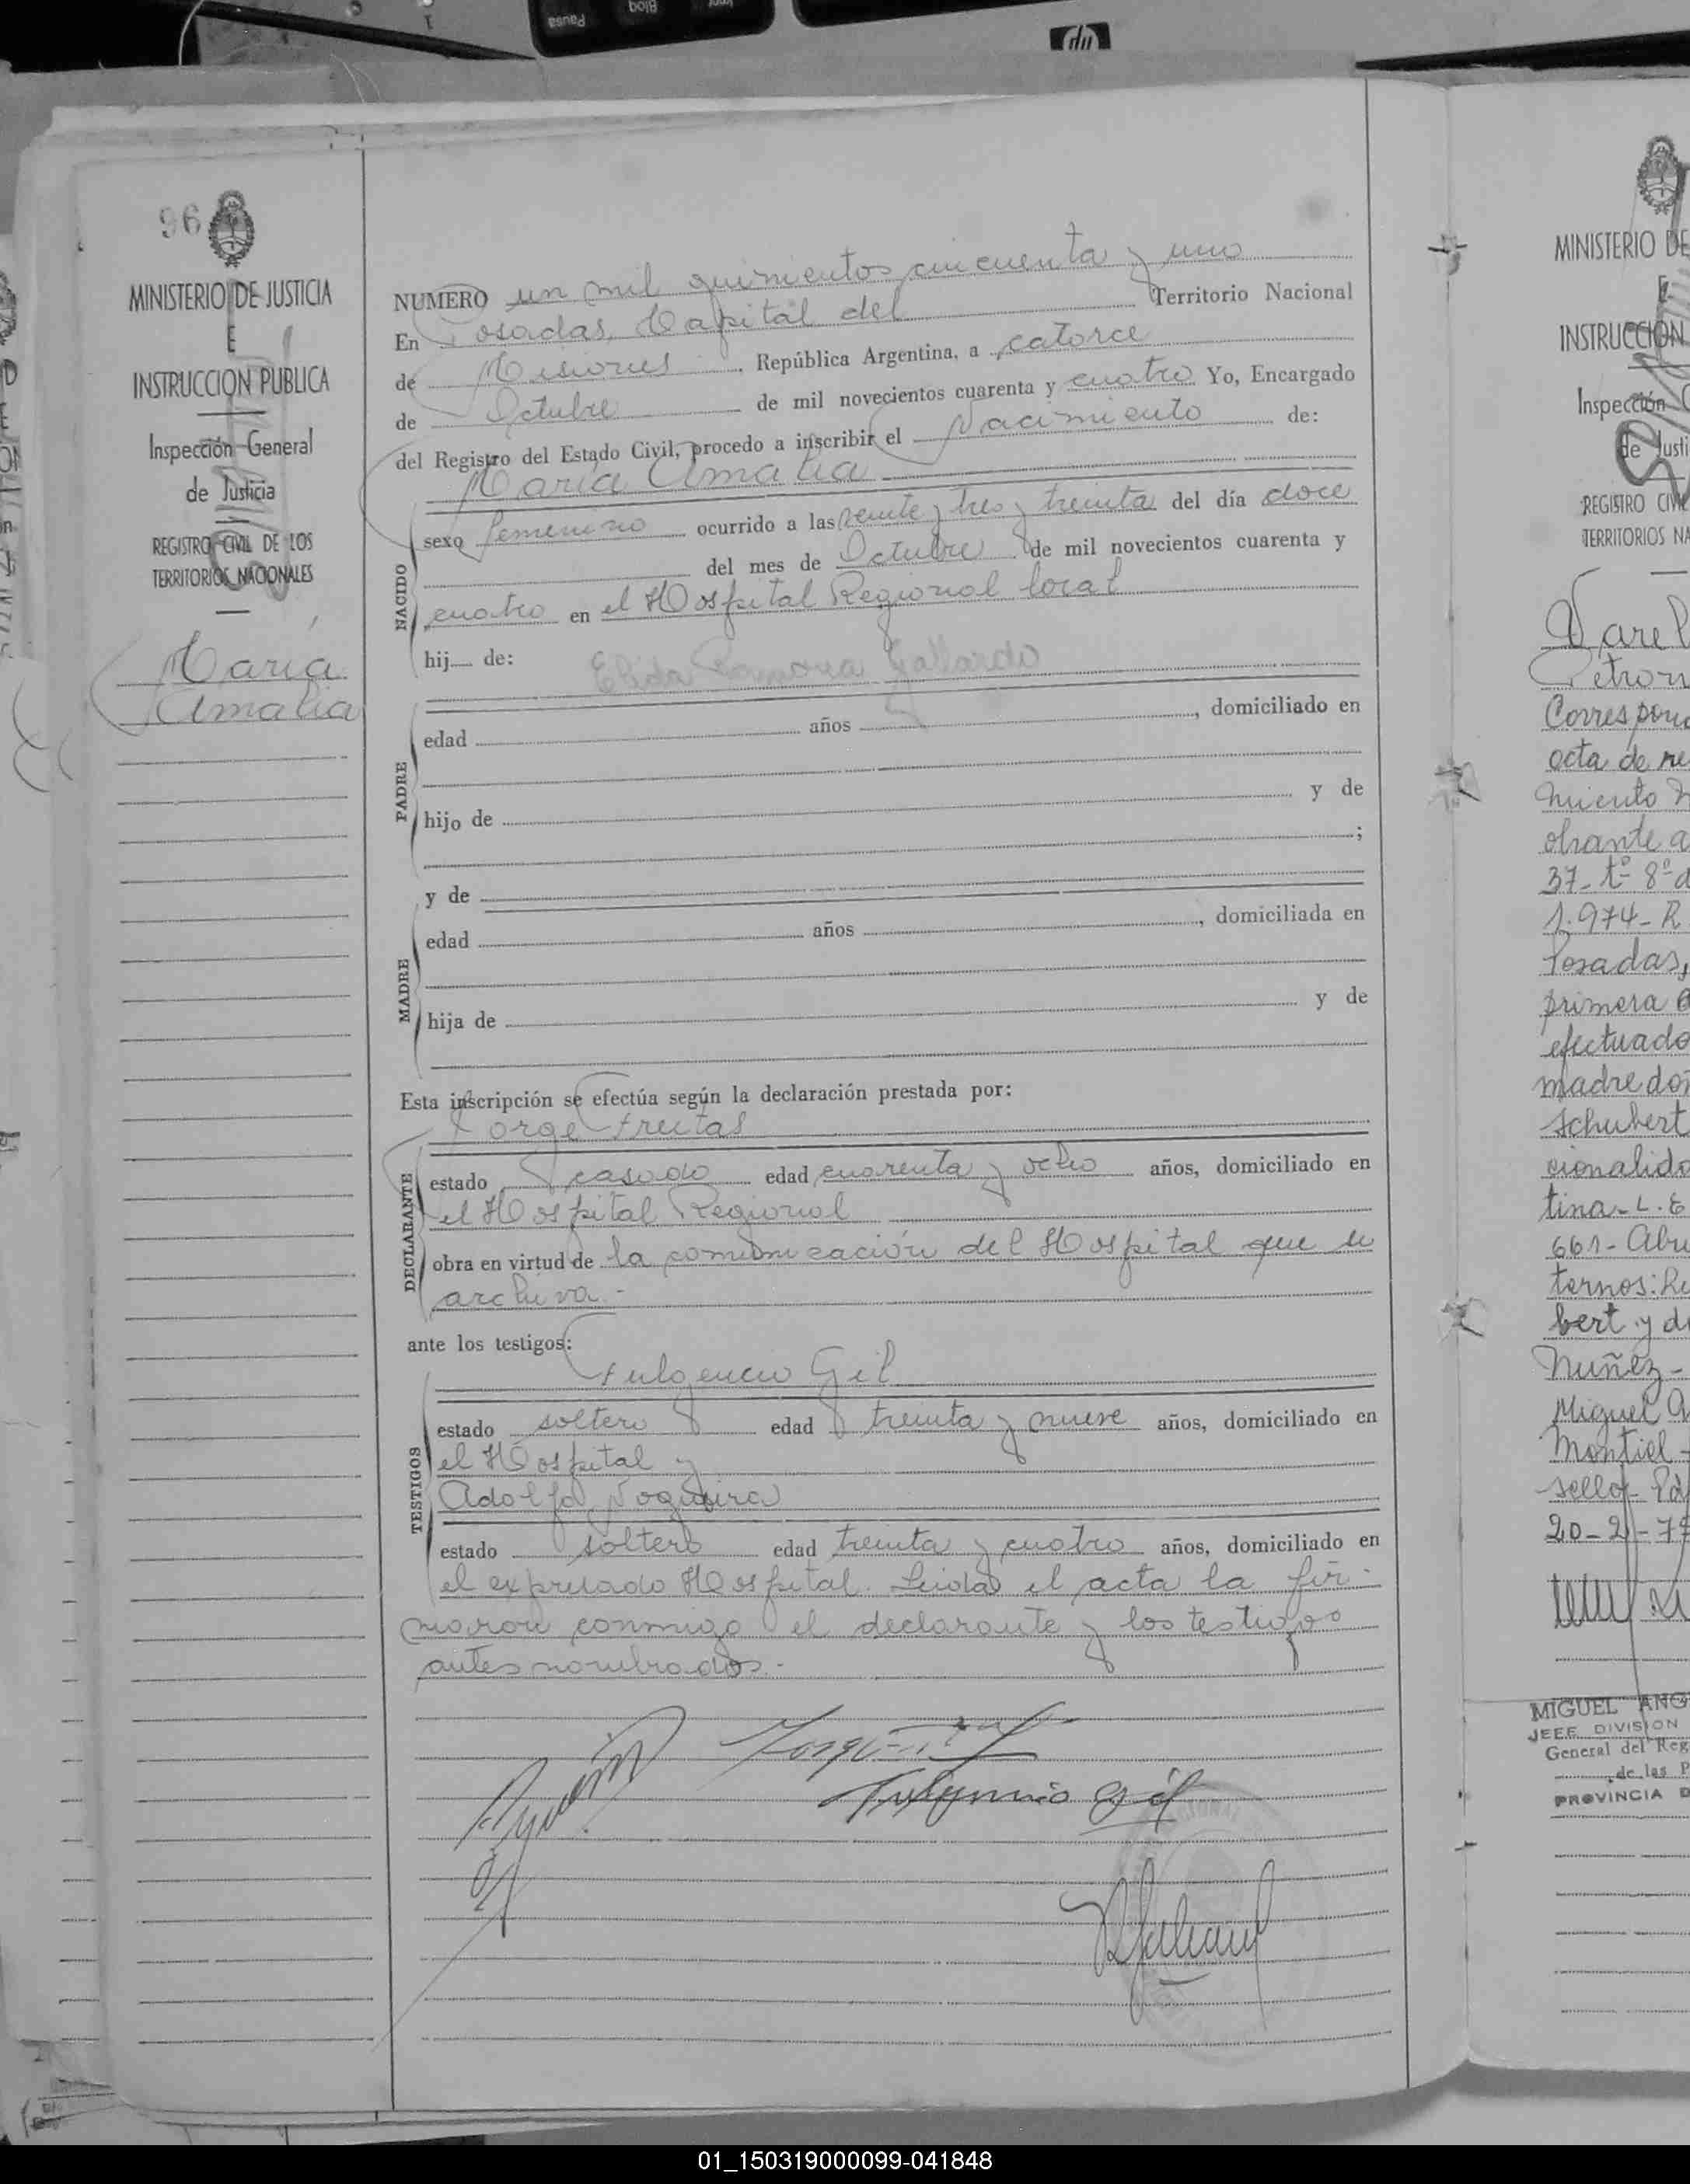 Pausa
Bloq
hp
96
MINISTERIO DE JUSTICIA
E
INSTRUCCION PUBLICA
Inspección General
de Justicia
REGISTRO CIVIL DE LOS
TERRITORIOS NACIONALES
María
Amalia
NUMERO un mil quinientos cincuenta y uno
En Posadas, Capital del Territorio Nacional
de Misiones, República Argentina, a catorce
de Octubre de mil novecientos cuarenta y cuatro Yo, Encargado
del Registro del Estado Civil, procedo a inscribir el Nacimiento de:
María Amalia
NACIDO
sexo femenino ocurrido a las veinte y tres y treinta del día doce
del mes de Octubre de mil novecientos cuarenta y
cuatro en el Hospital Regional local
hij de: Elida Ramona Gallardo
PADRE
edad años , domiciliado en
hijo de y de
;
y de
MADRE
edad años , domiciliada en
hija de y de
Esta inscripción se efectúa según la declaración prestada por:
Jorge Freitas
DECLARANTE
estado casado edad cuarenta y ocho años, domiciliado en
el Hospital Regional
obra en virtud de la comunicación del Hospital que se
archiva.-
ante los testigos:
Fulgencio Gil
TESTIGOS
estado soltero edad treinta y nueve años, domiciliado en
el Hospital y
Adolfo Nogueira
estado soltero edad treinta y cuatro años, domiciliado en
el expresado Hospital. Leida el acta la fir-
maron conmigo el declarante y los testigos
antes nombrados.-
Fulgencio Gil
MINISTERIO DE
E
INSTRUCCION
Inspección G
de Justi
REGISTRO CIVIL
TERRITORIOS NA
Varel
Petron
Correspond
acta de re
miento N
obrante a
37- tº 8º d
1.974- R
Posadas,
primera
efectuado
madre doñ
Schubert
cionalida
tina- L. E
661- Abu
ternos: Lu
bert y de
Nuñez-
Miguel A
Montiel-
sello
20-2-7
MIGUEL ANG
JEFE DIVISION
General del Reg
de las P
PROVINCIA D
01_150319000099-041848